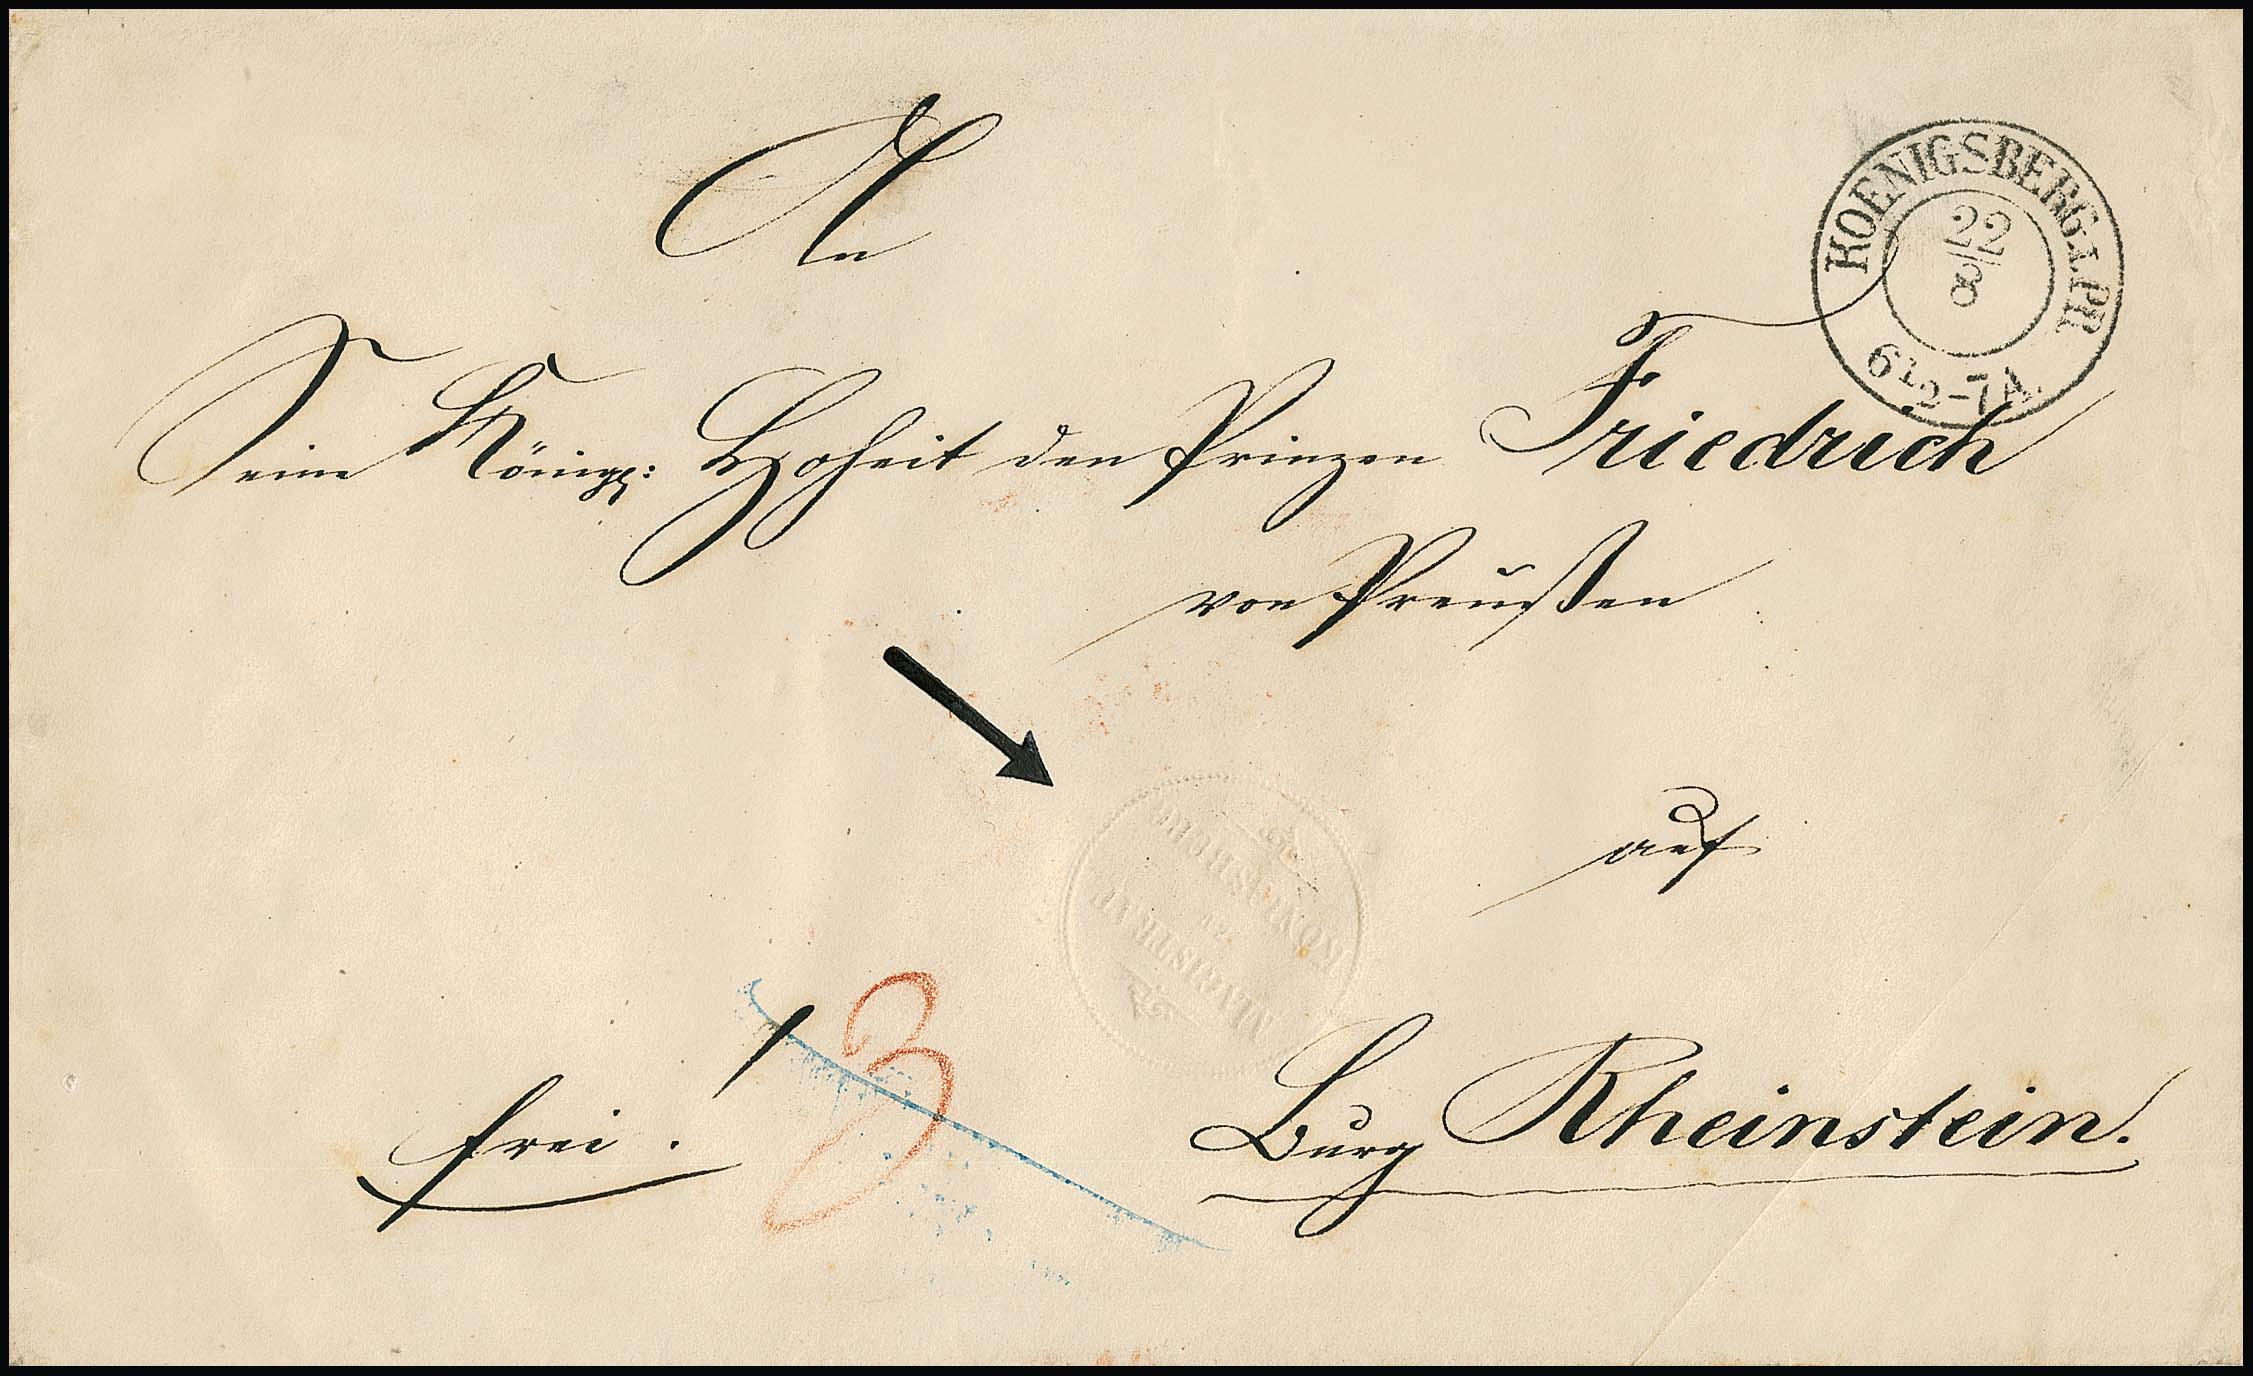 An
KOENIGSBERG I. PR
22
8
6½-7A.
Seine Königl: Hoheit den Prinzen Friedrich
von Preußen
auf
MAGISTRAT
ZU
KÖNIGSBERG
frei.
3
Burg Rheinstein.